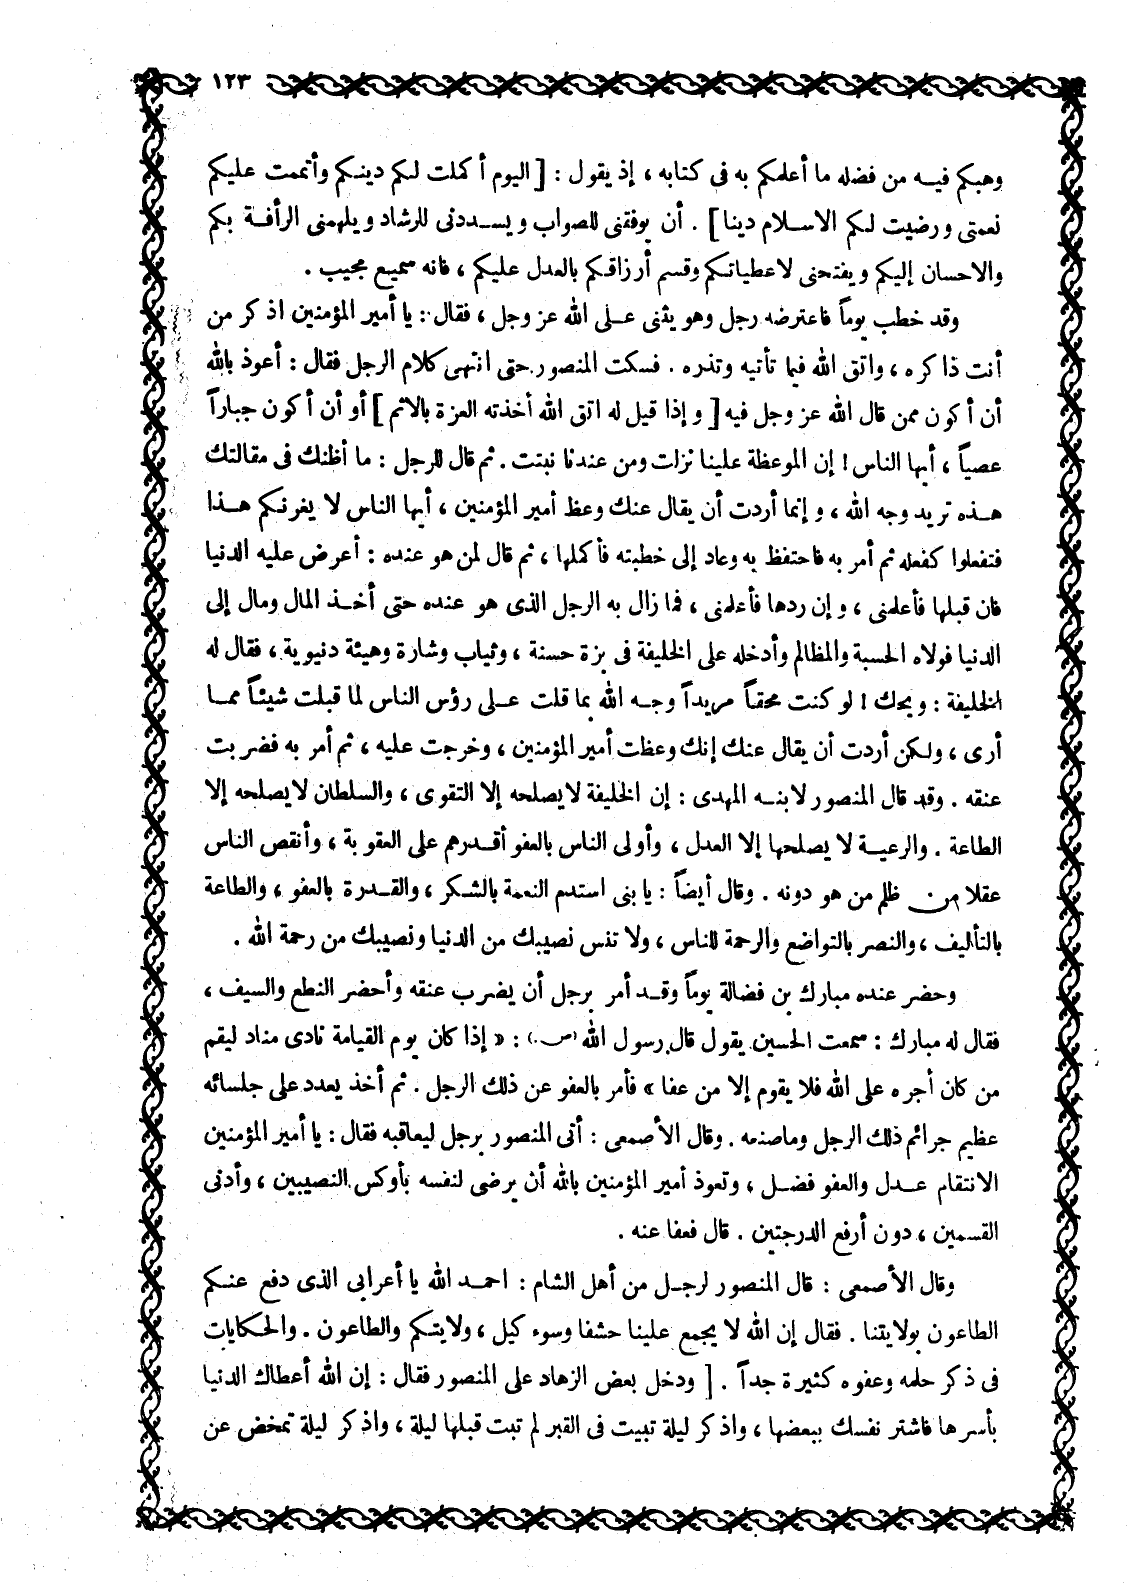 ١٢٣
وهبكم فيه من فضله ما أعلمكم به فى كتابه ، إذ يقول : [ اليوم أكملت لكم دينكم وأتممت عليكم
نعمتى ورضيت لكم الاسلام دينا ] . أن يوفقنى للصواب ويسددنى للرشاد ويلهمنى الرأفة بكم
والاحسان إليكم ويفتحنى لاعطياتكم وقسم أرزاقكم بالعدل عليكم ، فانه سميع مجيب .
وقد خطب يوماً فاعترضه رجل وهو يثنى على الله عز وجل ، فقال : يا أمير المؤمنين اذكر من
أنت ذاكره ، واتق الله فيما تأتيه وتذره . فسكت المنصور حتى انتهى كلام الرجل فقال : أعوذ بالله
أن أكون ممن قال الله عز وجل فيه [ وإذا قيل له اتق الله أخذته العزة بالاثم ] أو أن أكون جباراً
عصياً ، أيها الناس ! إن الموعظة علينا نزلت ومن عندنا نبتت . ثم قال للرجل : ما أظنك فى مقالتك
هذه تريد وجه الله ، وإنما أردت أن يقال عنك وعظ أمير المؤمنين ، أيها الناس لا يغرنكم هذا
فتفعلوا كفعله ثم أمر به فاحتفظ به وعاد إلى خطبته فأكملها ، ثم قال لمن هو عنده : أعرض عليه الدنيا
فان قبلها فأعلمنى ، وإن ردها فأعلمنى ، فما زال به الرجل الذى هو عنده حتى أخذ المال ومال إلى
الدنيا فولاه الحسبة والمظالم وأدخله على الخليفة فى بزة حسنة ، وثياب وشارة وهيئة دنيوية ، فقال له
الخليفة : ويحك ! لو كنت محقاً مريداً وجه الله بما قلت على رؤس الناس لما قبلت شيئاً مما
أرى ، ولكن أردت أن يقال عنك إنك وعظت أمير المؤمنين ، وخرجت عليه ، ثم أمر به فضربت
عنقه . وقد قال المنصور لابنه المهدى : إن الخليفة لا يصلحه إلا التقوى ، والسلطان لا يصلحه إلا
الطاعة . والرعية لا يصلحها إلا العدل ، وأولى الناس بالعفو أقدرهم على العقوبة ، وأنقص الناس
عقلا من ظلم من هو دونه . وقال أيضاً : يا بنى استدم النعمة بالشكر ، والقدرة بالعفو ، والطاعة
بالتأليف ، والنصر بالتواضع والرحمة للناس ، ولا تنس نصيبك من الدنيا ونصيبك من رحمة الله .
وحضر عنده مبارك بن فضالة يوماً وقد أمر برجل أن يضرب عنقه وأحضر النطع والسيف ،
فقال له مبارك : سمعت الحسين يقول قال رسول الله (ص.) : « إذا كان يوم القيامة نادى مناد ليقم
من كان أجره على الله فلا يقوم إلا من عفا » فأمر بالعفو عن ذلك الرجل . ثم أخذ يعدد على جلسائه
عظيم جرائم ذلك الرجل وماصنعه . وقال الأصمعى : أتى المنصور برجل ليعاقبه فقال : يا أمير المؤمنين
الانتقام عدل والعفو فضل ، وتعوذ أمير المؤمنين بالله أن يرضى لنفسه بأوكس النصيبين ، وأدنى
القسمين ، دون أرفع الدرجتين . قال فعفا عنه .
وقال الأصمعى : قال المنصور لرجل من أهل الشام : احمد الله يا أعرابى الذى دفع عنكم
الطاعون بولايتنا . فقال إن الله لا يجمع علينا حشفا وسوء كيل ، ولايتكم والطاعون . والحكايات
فى ذكر حلمه وعفوه كثيرة جداً . [ ودخل بعض الزهاد على المنصور فقال : إن الله أعطاك الدنيا
بأسرها فاشتر نفسك ببعضها ، واذكر ليلة تبيت فى القبر لم تبت قبلها ليلة ، واذكر ليلة تمخض عن